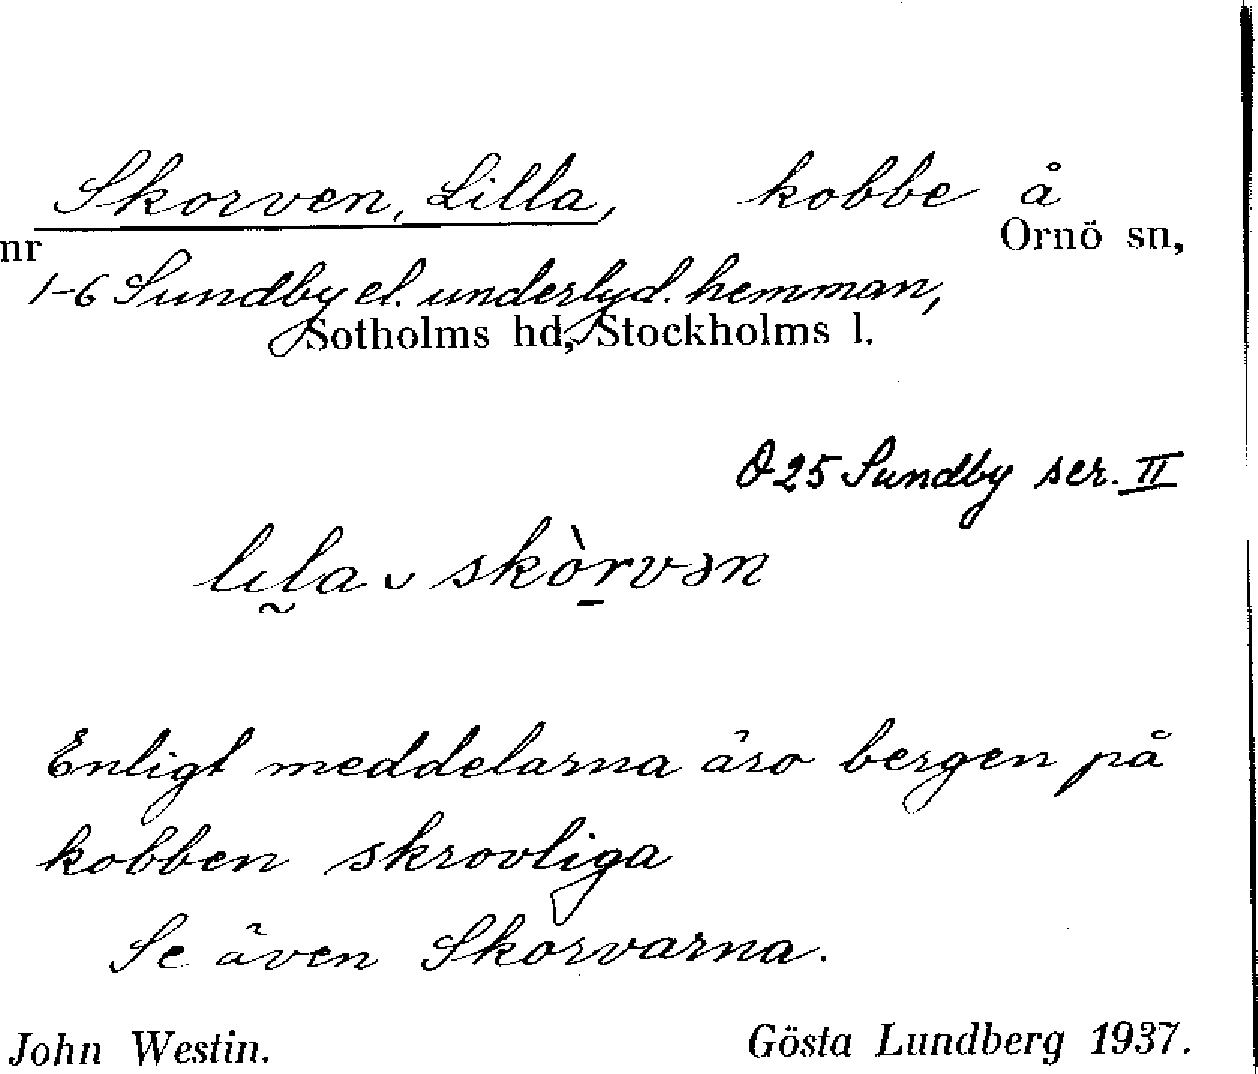 Skorven, Lilla, kobbe å
nr Ornö sn,
1-6 Sundby el. underlyd. hemman,
Sotholms hd, Stockholms l.
Ö 25 Sundby ser. II
lɩla ᴗ skòrvən
Enligt meddelarna äro bergen på
kobben skrovliga
Se även Skorvarna.
John Westin. Gösta Lundberg 1937.